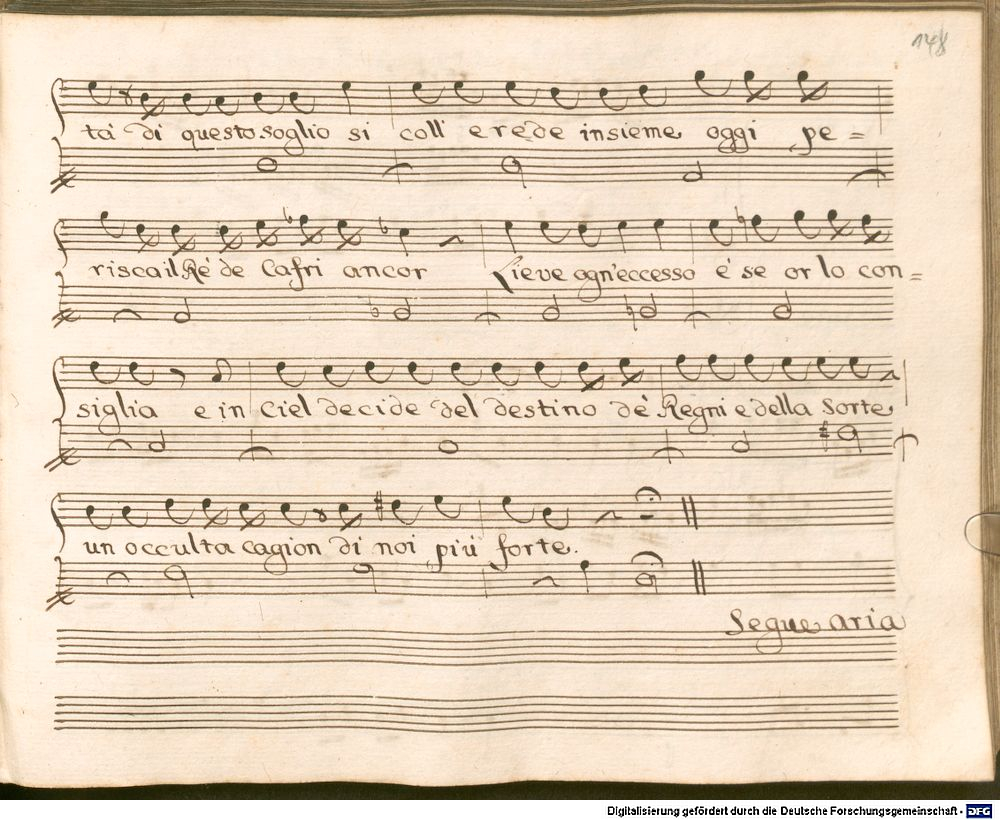 148
ta' di questo soglio si coll' erede insieme oggi pe=
risca il Rè de Cafri ancor Lieve ogn'eccesso é se or lo con=
siglia e in ciel decide del destino dè Regni e della sorte
un occulta cagion di noi piú forte.
Segue aria
Digitalisierung gefördert durch die Deutsche Forschungsgemeinschaft - DFG